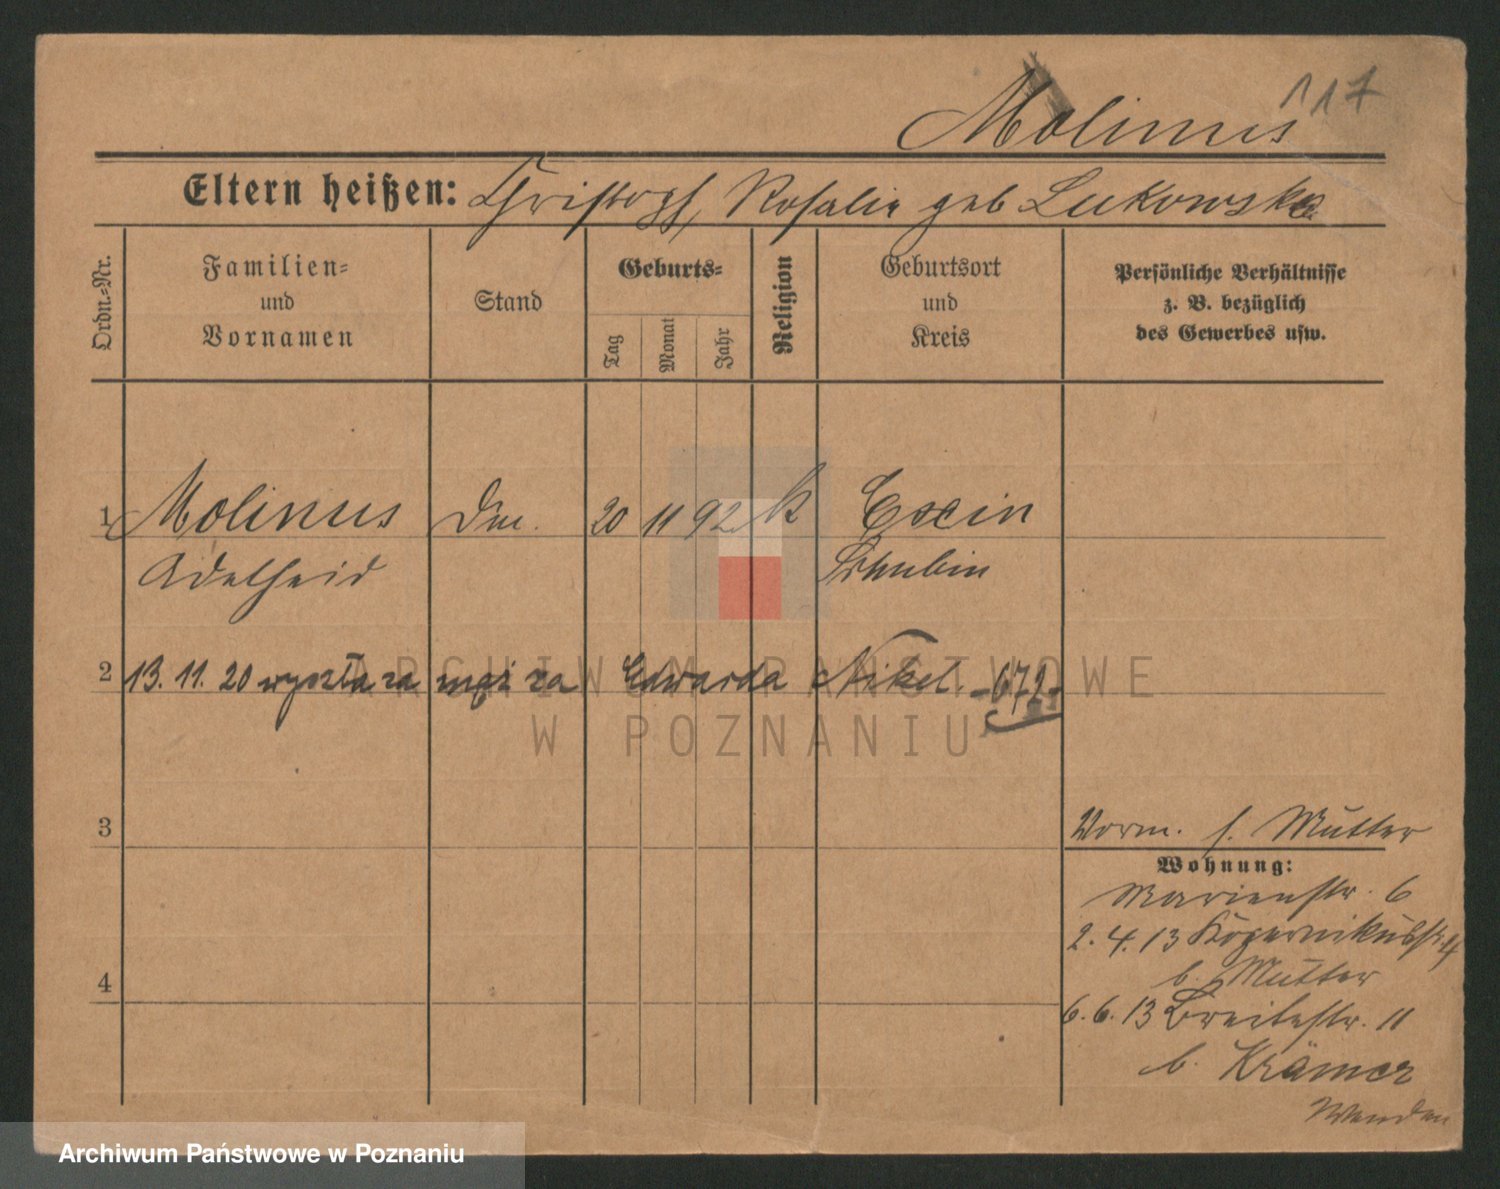 117
Molinus
Eltern heißen: Christoph, Rosalie geb Lukowska
Ordn.-Nr.
Familien-
und
Vornamen
Stand
Geburts-
Tag
Monat
Jahr
Religion
Geburtsort
und
Kreis
Persönliche Verhältnisse
z. B. bezüglich
des Gewerbes usw.
1 Molinus 20 11 92 k Exin
Adelheid Schubin
2 13. 11. 20 wyszła za mąż za Edwarda Nikel. -672-
ARCHIWUM PAŃSTWOWE
W POZNANIU
3
Vorm. s. Mutter
Wohnung:
Marienstr. 6
2. 4. 13 Kopernikusstr. 4
b. Mutter
4
6. 6. 13 Breitestr. 11
b. Krämer
Wenden
Archiwum Państwowe w Poznaniu